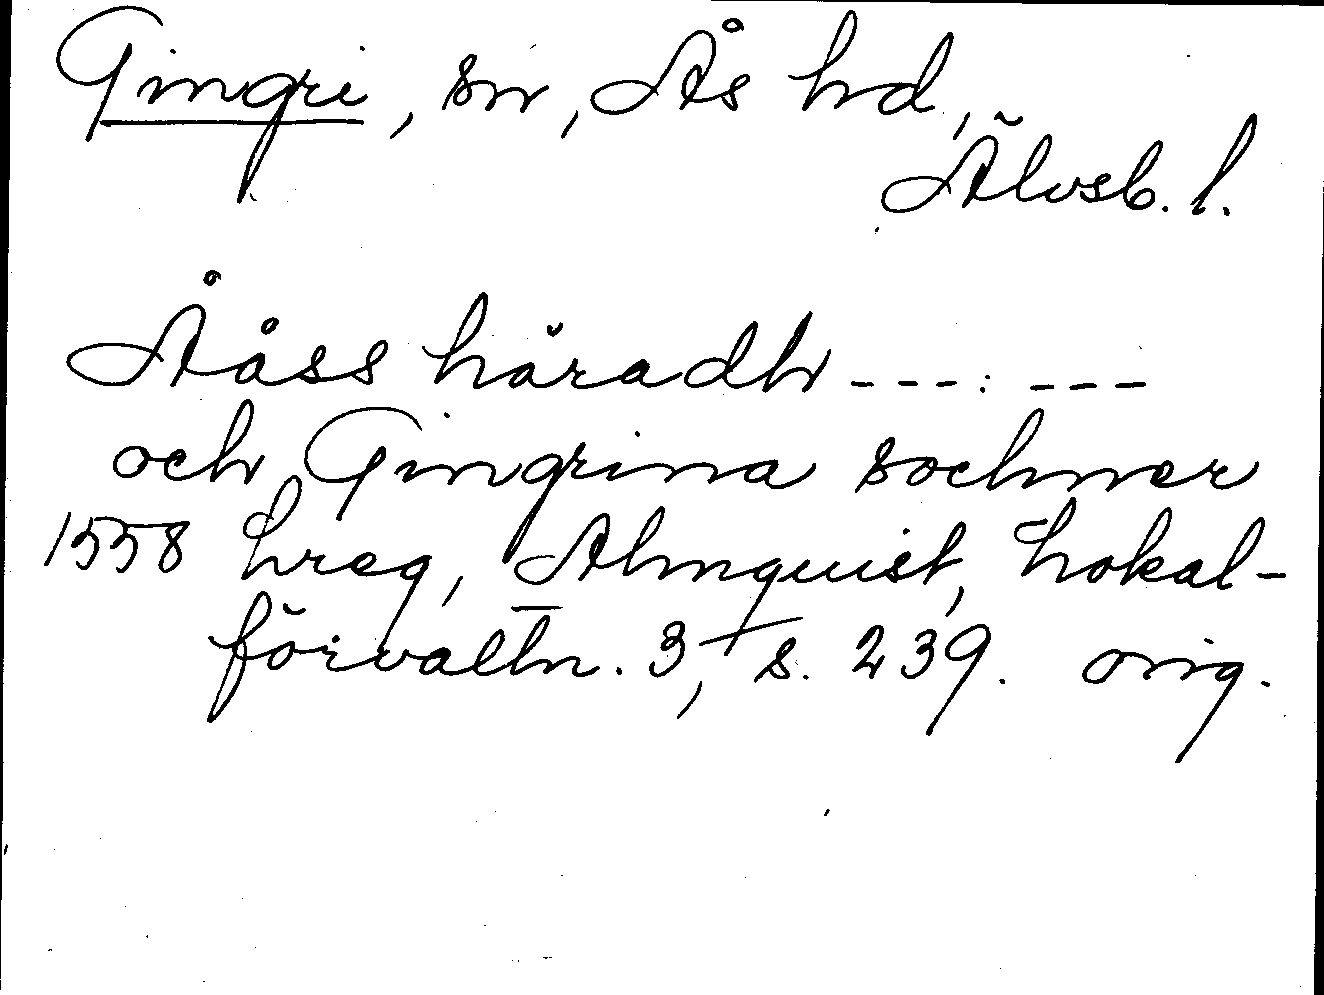 Gingri, sn, Ås hd,
Älvsb. l.
Ååss häradh ---:---
och Gingrina sochner
1558 Lreg, Almquist, Lokal-
förvaltn. 3, s. 239. orig.